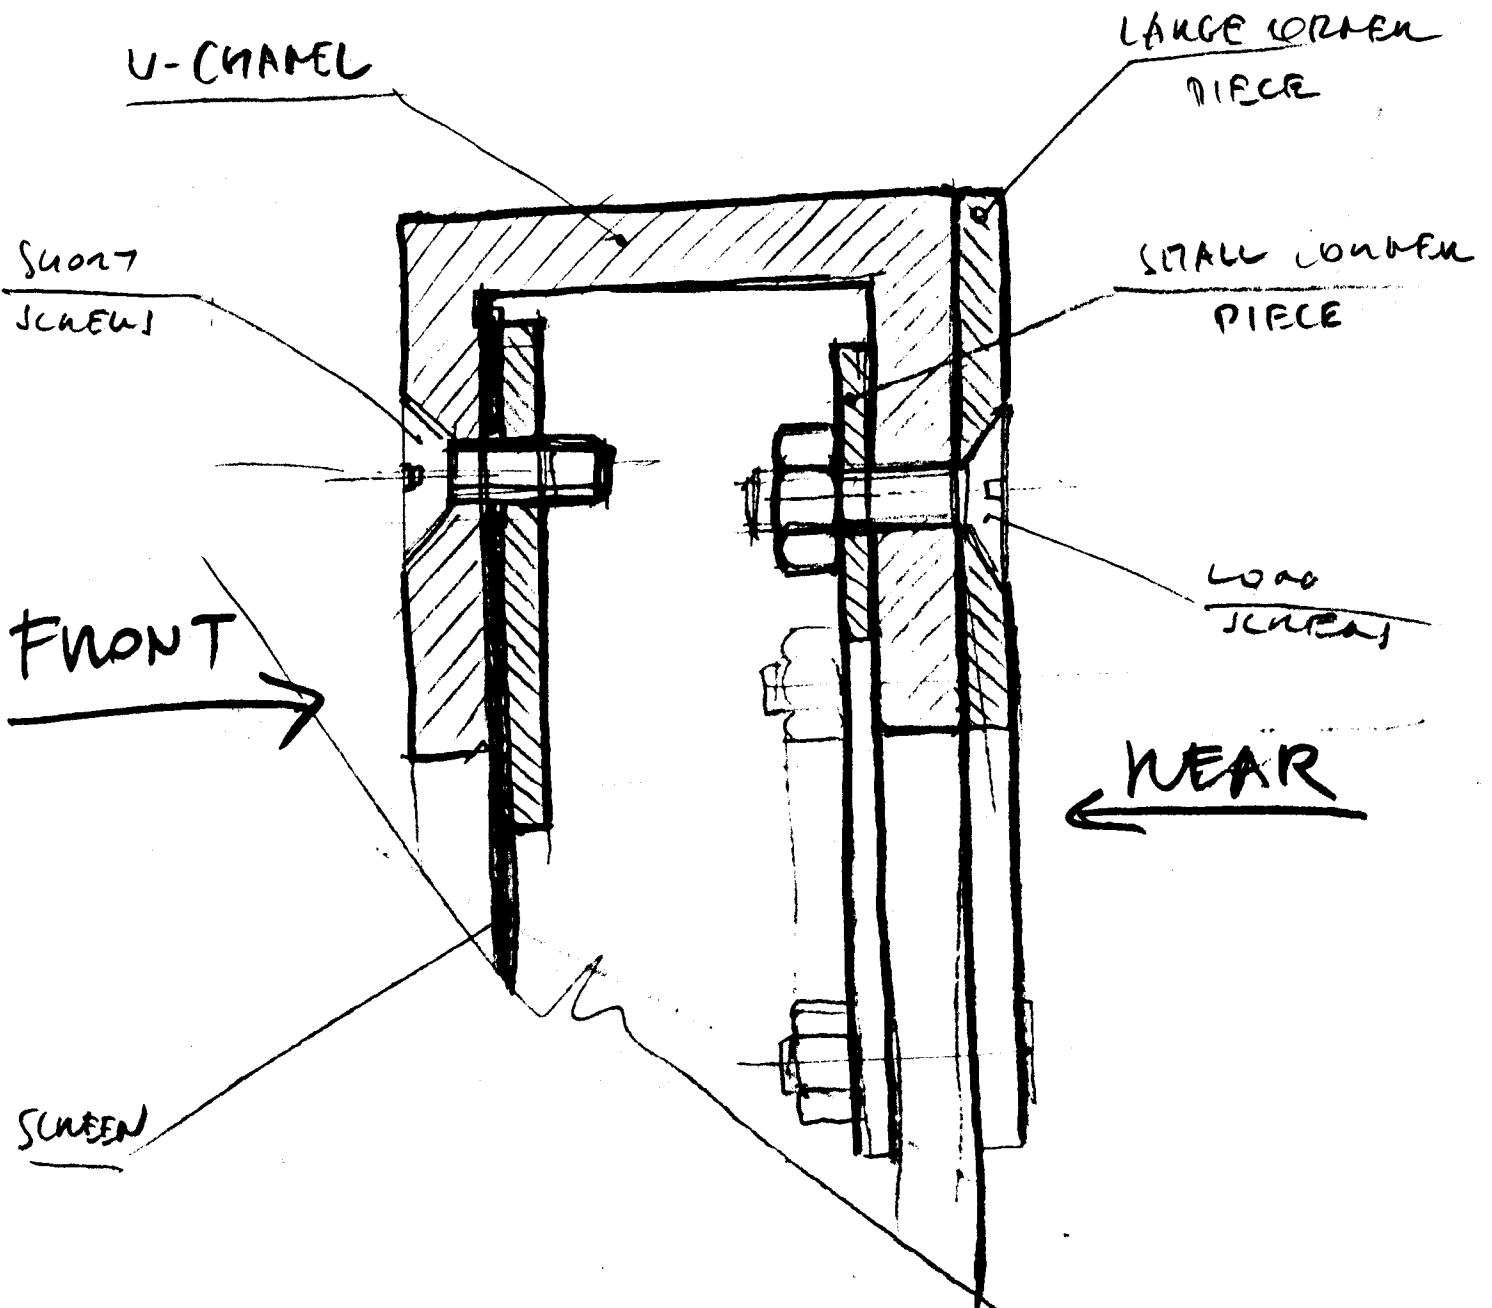 U-CHANEL
LARGE CORNER
PIECE
SHORT
SCREWS
SMALL CORNER
PIECE
LONG
SCREWS
FRONT
REAR
SCREEN